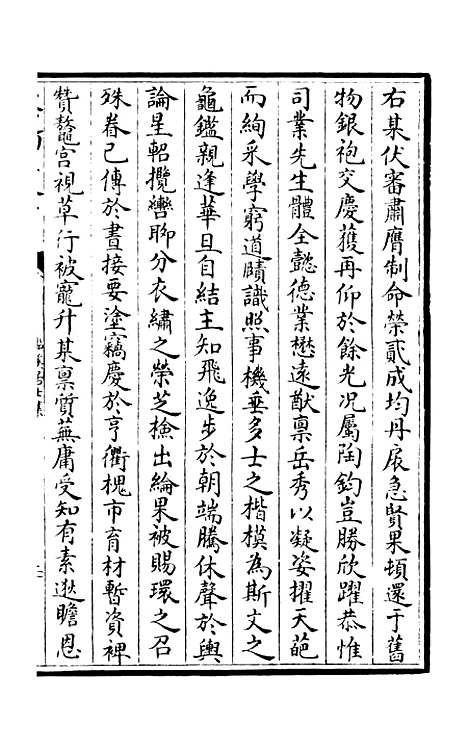 右某伏審肅膺制命榮貳成均丹扆急賢果頓還于舊
物銀袍交慶獲再仰於餘光况屬陶鈞豈勝欣躍恭惟
司業先生體全懿德業懋遠猷禀岳秀以凝姿擢天葩
而絢采學窮道賾識照事機垂多士之楷模為斯文之
龜鑑親逢華旦自結主知飛逸步於朝端騰休聲於輿
論星軺攬轡聊分衣繡之榮芝檢出綸果被賜環之召
殊眷已傳於晝接要塗竊慶於亨衢槐市育材暫資裨
贊鼇宫視草行被寵升某禀質蕪庸受知有素逖瞻恩